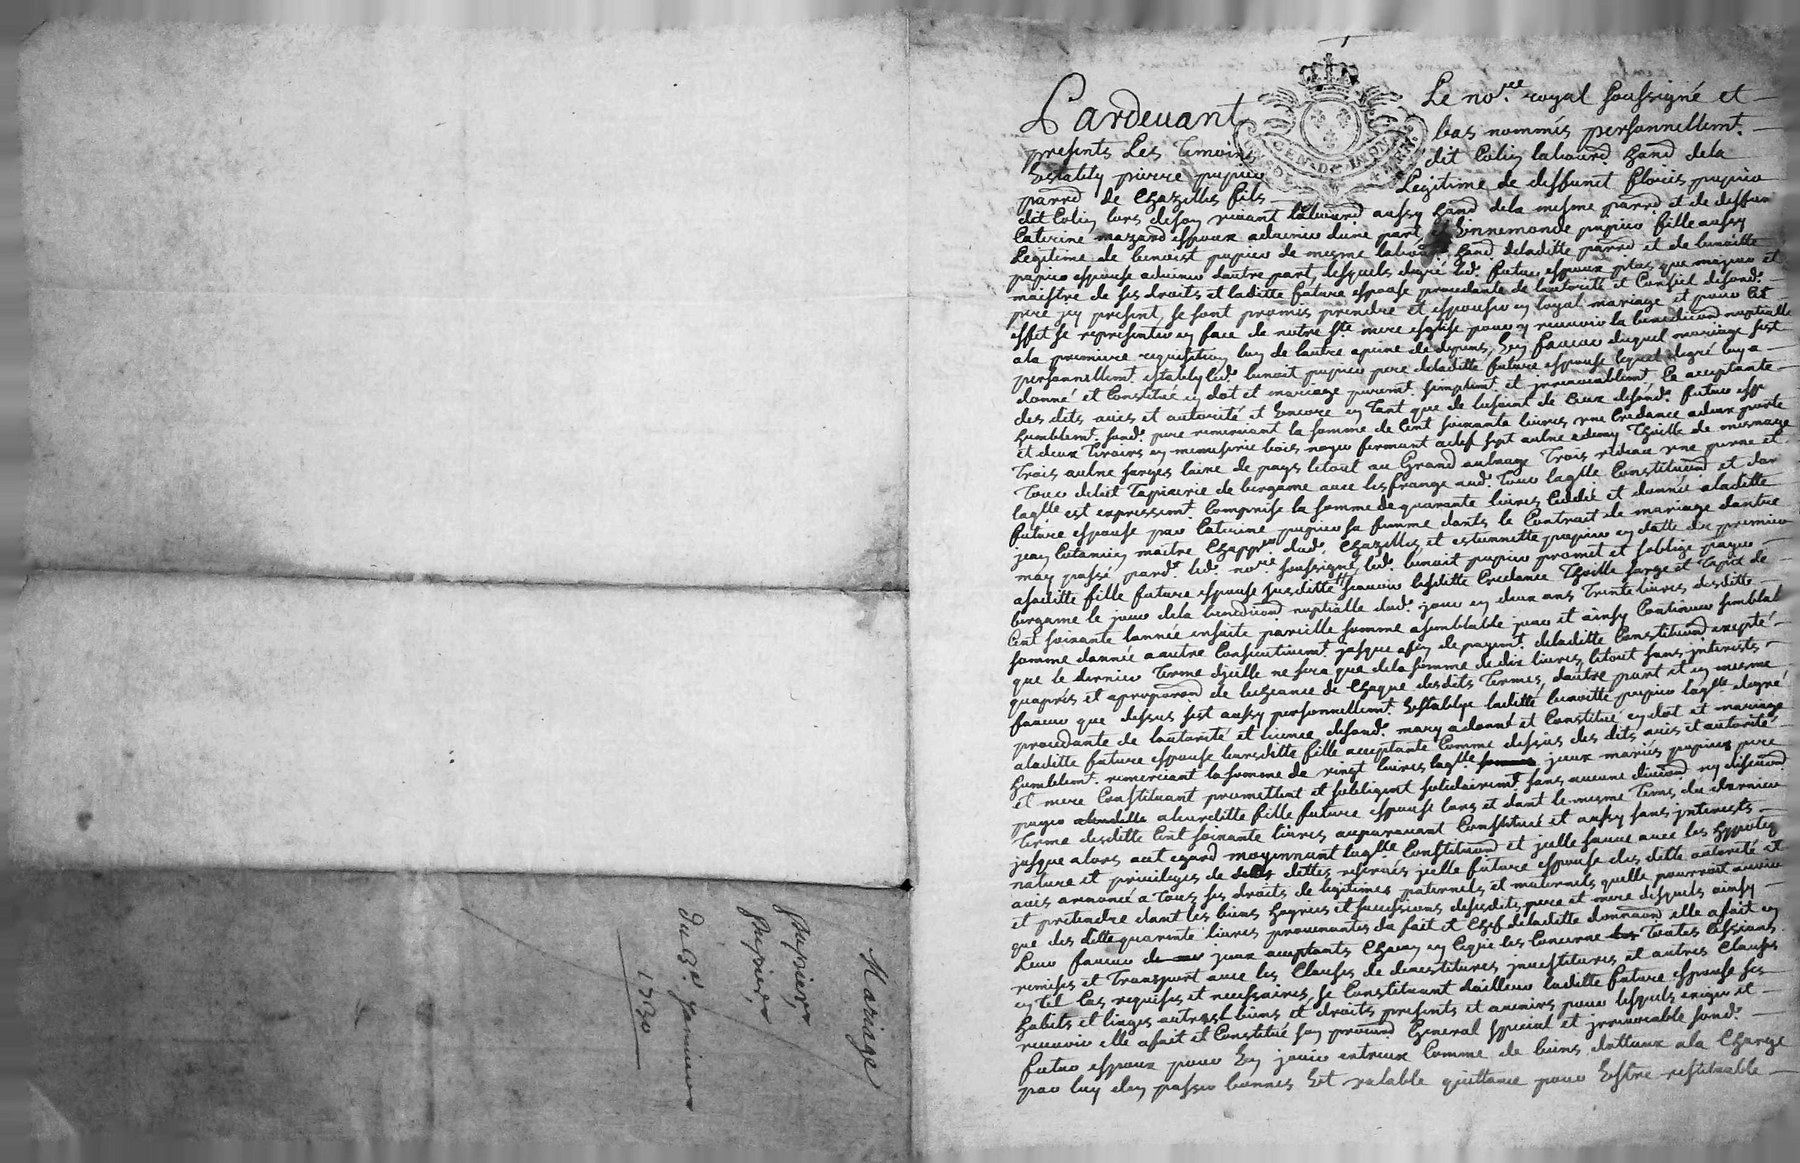 Mariage
pupier,
Pupier,
du 23e Janvier
1730
Pardevant Le nore. royal soussigné et
presents Les temoins bas nommés personnellemt.
Establys pierre pupier dit Colin labourd. hand dela
parrd de Chazelles fils Legitime de deffunct pupier
dit Colin lors de son vivant laboured aussy hand dela mesme parrd et de deffun
Caterine mazard espoux advenir dune part, et Ennemonde pupier fille aussy
Legitime de benoist pupier de mesme labourd. hand deladitte parrd et de benoitte
pupier espouse advenir dautre part, desquels degré led. futur espoux plus que majeur et
maistre de ses droits et laditte future espouse procedante de lautorité et Conseil desond.
pere jcy present, se sont promis prendre et espouser en loyal mariage et pour Cet
effet se representer en face de notre ste mere esglise pour y recevoir la benediction nuptialle
ala premiere requisition lun de lautre apeine de depens, En faveur duquel mariage sest
personnellemt. estably led. benoit pupier pere deladitte future espouse lequel degré luy a
donné et Constitué en dot et mariage puremt. simplemt. et jrrevocablemt. Ce acceptante
des dits avis et autorité et Encore en tant que de besoint de Ceux desond. futur esp
humblemt. sond. pere remerciant la somme de Cent soixante livres une Credance adeux porte
et deux tiroirs en menuserie bois noyer fermant aclef sept aulne edemy thoille de mesnage
trois aulne sarges laine de pays letout au Grand aulnage trois rideau une
tour delict tapisserie de bergame avec les frange aud. tour laqlle Constitution et dot
laqlle est expressemt. Comprise la somme de quarante livres Ceddée et donnée aladitte
future espouse par Caterine pupier sa femme dants le Contrait de mariage dentre
jean maitre Chapp dud. Chazelles et estiennette pupier en datte du premier
may passé pard.t led. nore. soussigné, led. benoit pupier promet et soblige payer
asaditte fille future espouse susditte lesditte Credance thoille sarge et tapis de
bergame le jour dela benediction nuptialle dud. jour en deux ans trente livres desditte
Cent soixante lannée ensuite pareille somme asemblable jour et ainsy Continuer semblable
somme dannée aautre Consecutivemt. jusque afin de payemt. deladitte Constitution excepté
que le dernier terme djcelle ne sera que dela somme de dix livres, letout sans jnterests
quaprés et aproportion de lecheance de Chaque desdits termes, dautre part et en mesme
faveur que dessus sest aussy personnellemt. Establye laditte benoitte pupier laqlle degré
procedante de lautorité et licence desond. mary adonné et Constitué en dot et mariage
aladitte future espouse leursditte fille acceptante Comme dessus des dits avis et autorité
humblemt. remerciant la somme de vingt livres laqlle jceux mariés pupiers pere
et mere Constituant promettent et sobligent solidairemt. sans aucune division ny discution
payer aleurditte fille future espouse lors et dant le mesme tems du dernier
terme desditte Cent soixante livres auparavant Constitué et aussy sans jnterests
jusque alors aut egard moyennant laqlle Constitution et jcelle sauve avec les hypoteq
nature et privileges de dettes reservés jcelle future espouse des ditte autorité et
avis arenoncé a tous ses droits de legitimes paternels et maternels quelle pourroit avoir
et pretendre dant les biens hoyries et successions desesdits pere et mere desquels ainsy
que des ditte quarente livres provenantes du fait et Chef deladitte donnation elle afait en
Leur faveur jceux acceptants Chacun en Cequi les Concerne toutes Cessions
remises et transport avec les Clauses de demestitures jnvestitures et autres Clauses
en tel Cas requises et necessaires, se Constituant dailleur laditte future espouse ses
habits et linges autres biens et droits presents et avenirs pour lesquels exiger et
recevoir elle afait et Constitué son procurd General special et jrrevocable sond.
futur espoux pour En jouir entreux Comme de biens dottaux ala Charge
par luy den passer bonnes Est valable quittance pour Estre restituable